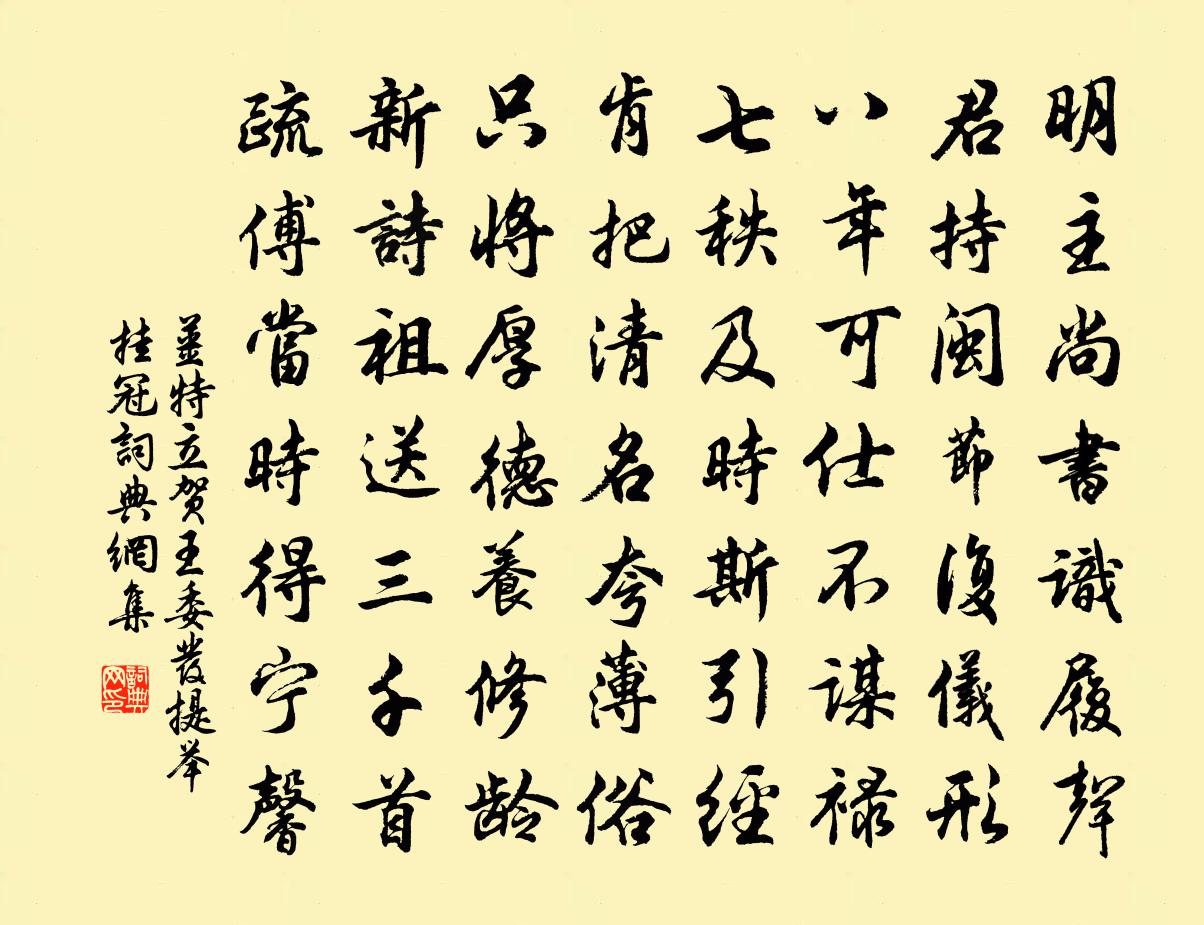 明主尚書識履聲
君持閩節復儀形
八年可仕不謀禄
七秩及時斯引經
肯把清名夸薄俗
只將厚德養修龄
新詩祖送三千首
疏傅當時得宁馨
姜特立贺王委發提举
挂冠詞典網集
詞典网印